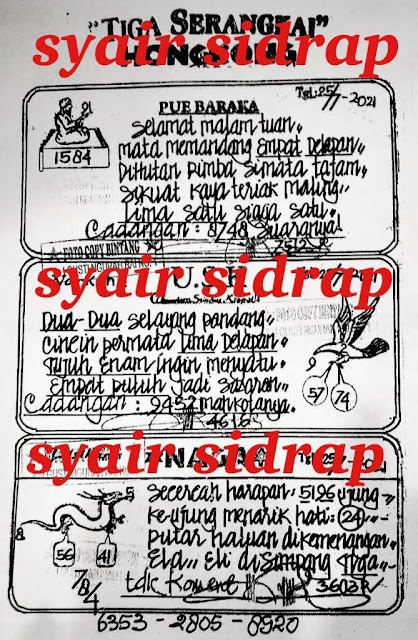 "TIGA SERANGKAI"
HONGKONG
syair sidrap
PUE BARAKA
Tgl: 25/7-2021
1584
Selamat malam tuan..
mata memandang Empat Delapan
Dihutan Rimba Simata tajam
Sikuat kaya teriak maling..
Lima satu siaga satu.
Cadangan : 8748 suaranya
FOTO COPY BINTANG
syair sidrap
Dua-Dua selayang pandang,
Cincin permata Lima Delapan
Tujuh Enam ingin menyatu.
Empat puluh jadi sasaran
Cadangan : 9452 mahkotanya.
4616
57 74
syair sidrap
NAGA
Secercah harapan: 5126 ujung
ke-ujung menarik hati: 24
putar haluan dikemenangan
Ela... Eli disimpang tiga
tdk Komen
3603 R
56 41
7/8/4
6353 - 2805 - 8920